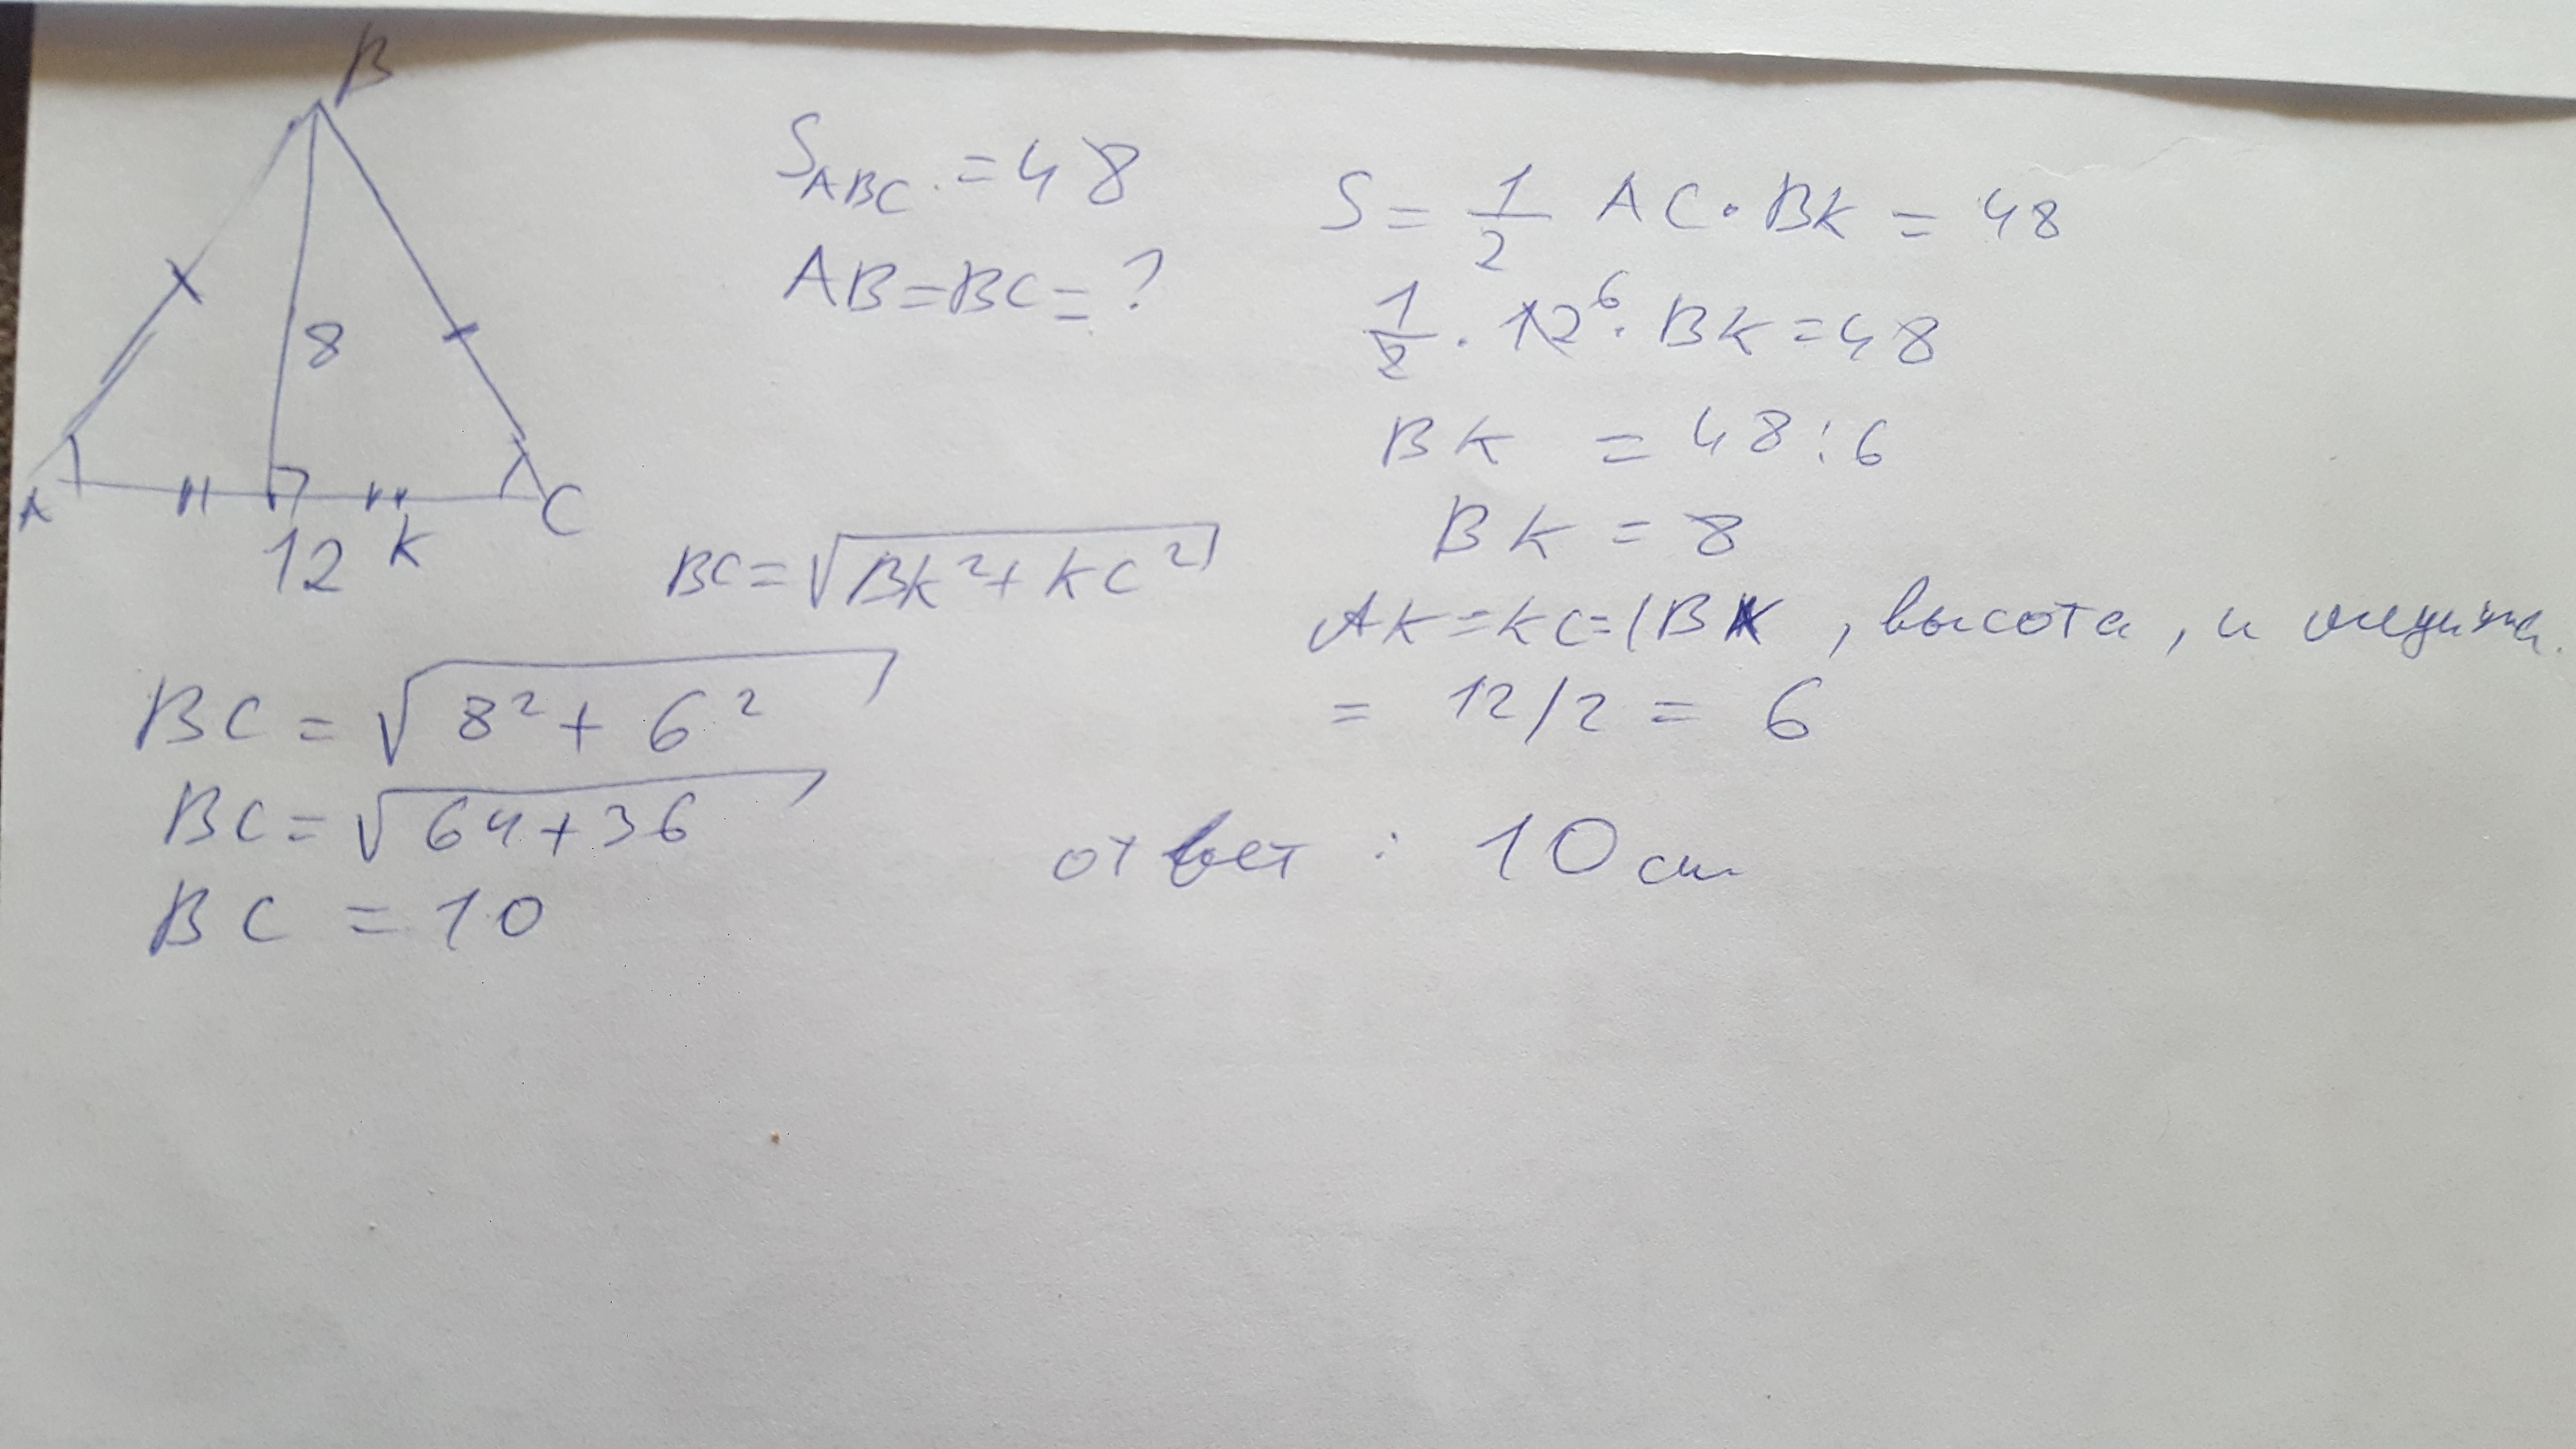 B
8
A
C
12 K
S_ABC = 48
AB = BC = ?
S = 1/2 AC · BK = 48
1/2 · 12 ⁶ · BK = 48
BK = 48 : 6
BK = 8
AK = KC = (BK, высота, и медиана.
= 12/2 = 6
BC = √BK² + KC²
BC = √8² + 6²
BC = √64 + 36
BC = 10
ответ : 10 см